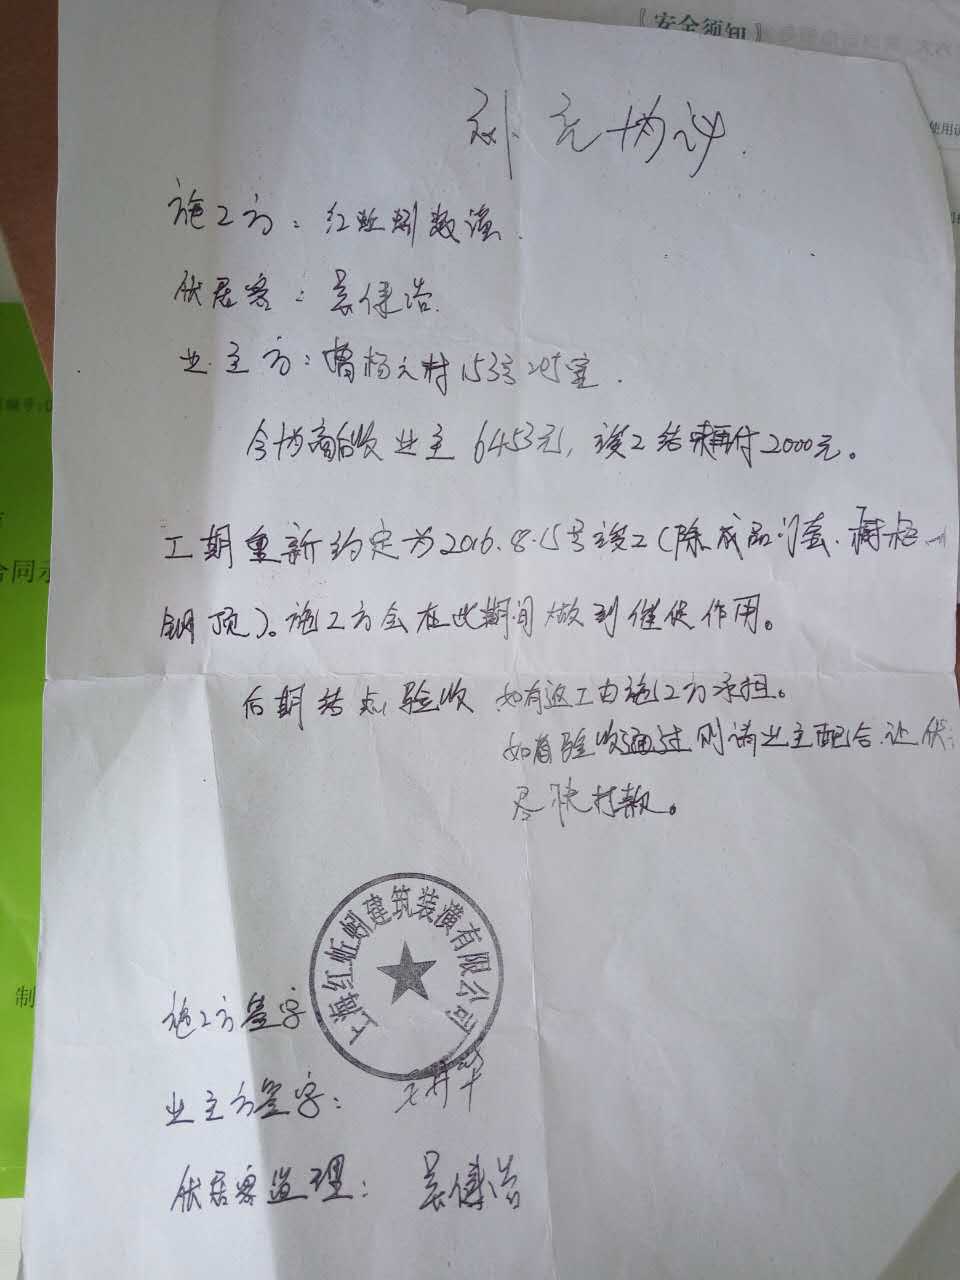 《安全须知》
使用说
补充协议.
施工方：红蚯蚓数海.
优居客：吴健浩.
业主方：曹杨六村153号245室.
今协商后收业主6453元，竣工结束再付2000元。
工期重新约定为2016.8.15号竣工（除成品门套、橱柜、
铝顶）。施工方会在此期间做到催促作用。
后期节点验收 如有返工由施工方承担。
如有验收通过则请业主配合.让优
尽快打款。
合同示
制
上海红蚯蚓建筑装潢有限公司
施工方签字
业主方签字：
优居客监理： 吴健浩